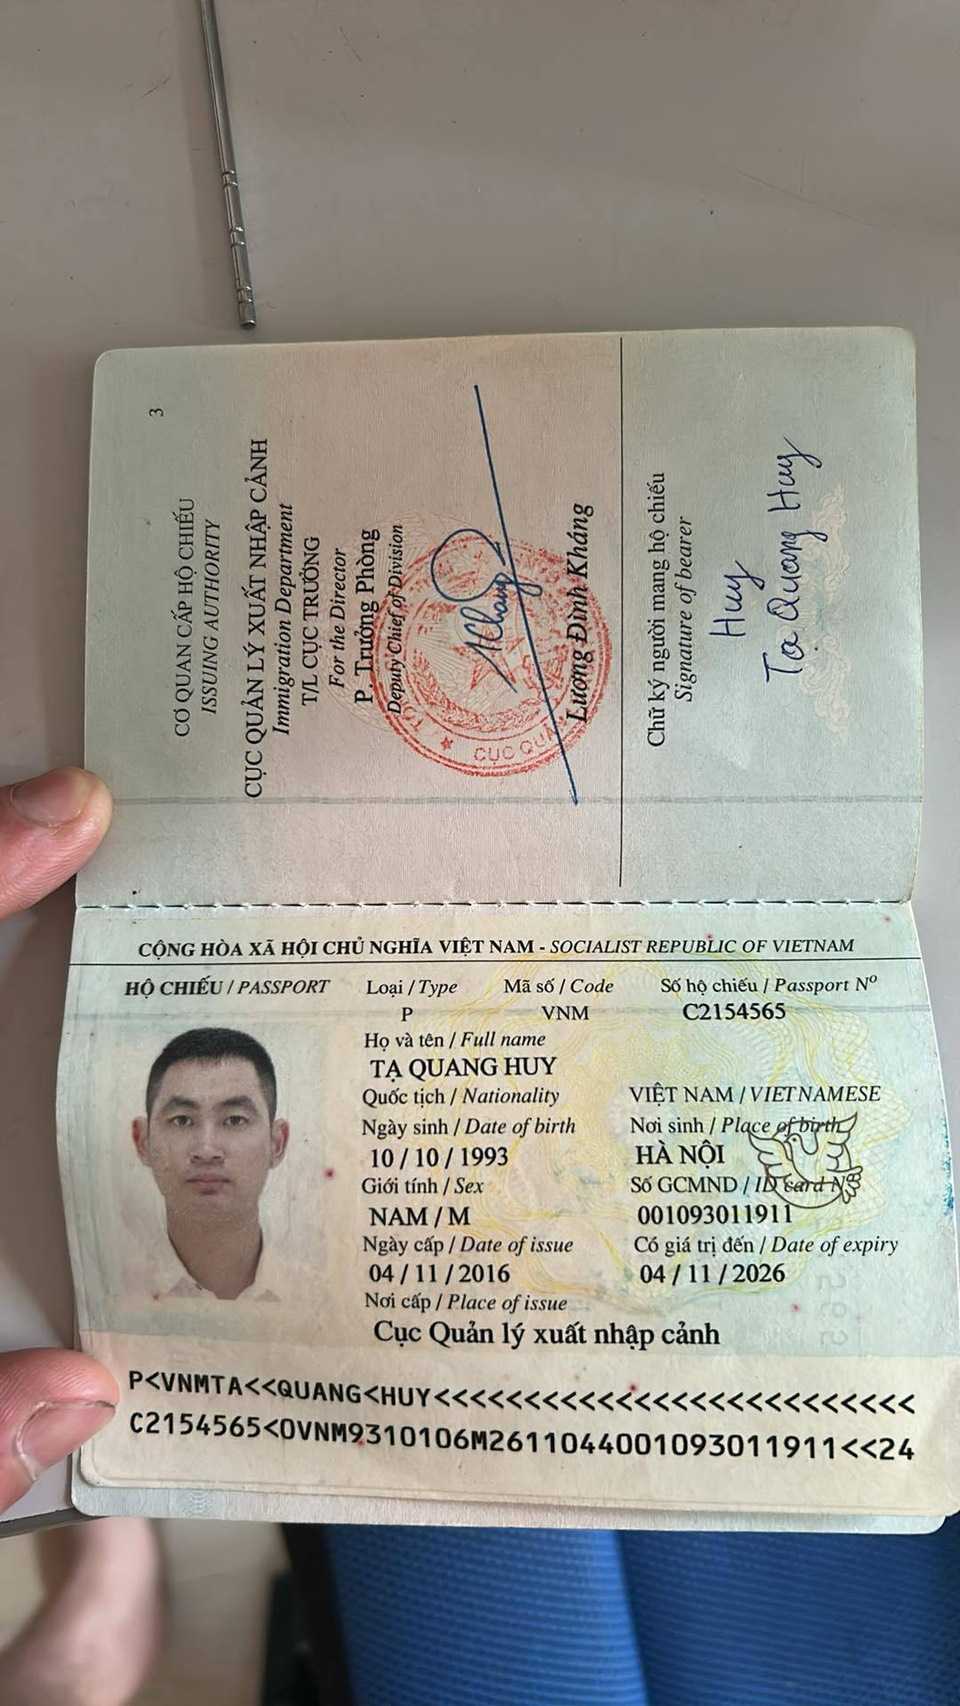 3
CƠ QUAN CẤP HỘ CHIẾU
ISSUING AUTHORITY
CỤC QUẢN LÝ XUẤT NHẬP CẢNH
Immigration Department
T/L CỤC TRƯỞNG
For the Director
P. Trưởng Phòng
Deputy Chief of Division
CỤC QUẢ
Lương Đình Kháng
Chữ ký người mang hộ chiếu
Signature of bearer
Huy
Tạ Quang Huy
CỘNG HÒA XÃ HỘI CHỦ NGHĨA VIỆT NAM - SOCIALIST REPUBLIC OF VIETNAM
HỘ CHIẾU / PASSPORT Loại / Type Mã số / Code Số hộ chiếu / Passport Nº
P VNM C2154565
Họ và tên / Full name
TẠ QUANG HUY
Quốc tịch / Nationality VIỆT NAM / VIETNAMESE
Ngày sinh / Date of birth Nơi sinh / Place of birth
10 / 10 / 1993 HÀ NỘI
Giới tính / Sex Số GCMND / ID card Nº
NAM / M 001093011911
Ngày cấp / Date of issue Có giá trị đến / Date of expiry
04 / 11 / 2016 04 / 11 / 2026
Nơi cấp / Place of issue
Cục Quản lý xuất nhập cảnh
P<VNMTA<<QUANG<HUY<<<<<<<<<<<<<<<<<<<<<<<<<<
C2154565<0VNM9310106M2611044001093011911<<24